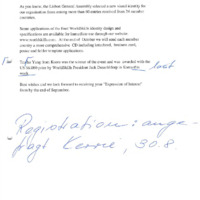 As you know, the Lisbon General Assembly selected a new visual identity for
our organisation from among more than 60 entries received from 20 member
countries.
Some applications of the final WorldSkills identity design and
specifications are available for immediate use through our website:
www.worldskills.com. At the end of October we will send each member
country a more comprehensive CD including letterhead, business card,
press and other template applications.
Yang Soon Keum was the winner of the award and was awarded with the
by WorldSkills President Jack Dusseldorp in
week.
Best wishes and we look forward to receiving your "Expression of Interest"
form by the end of September.
Registration: ange-
fragt Kerrie, 30.8.